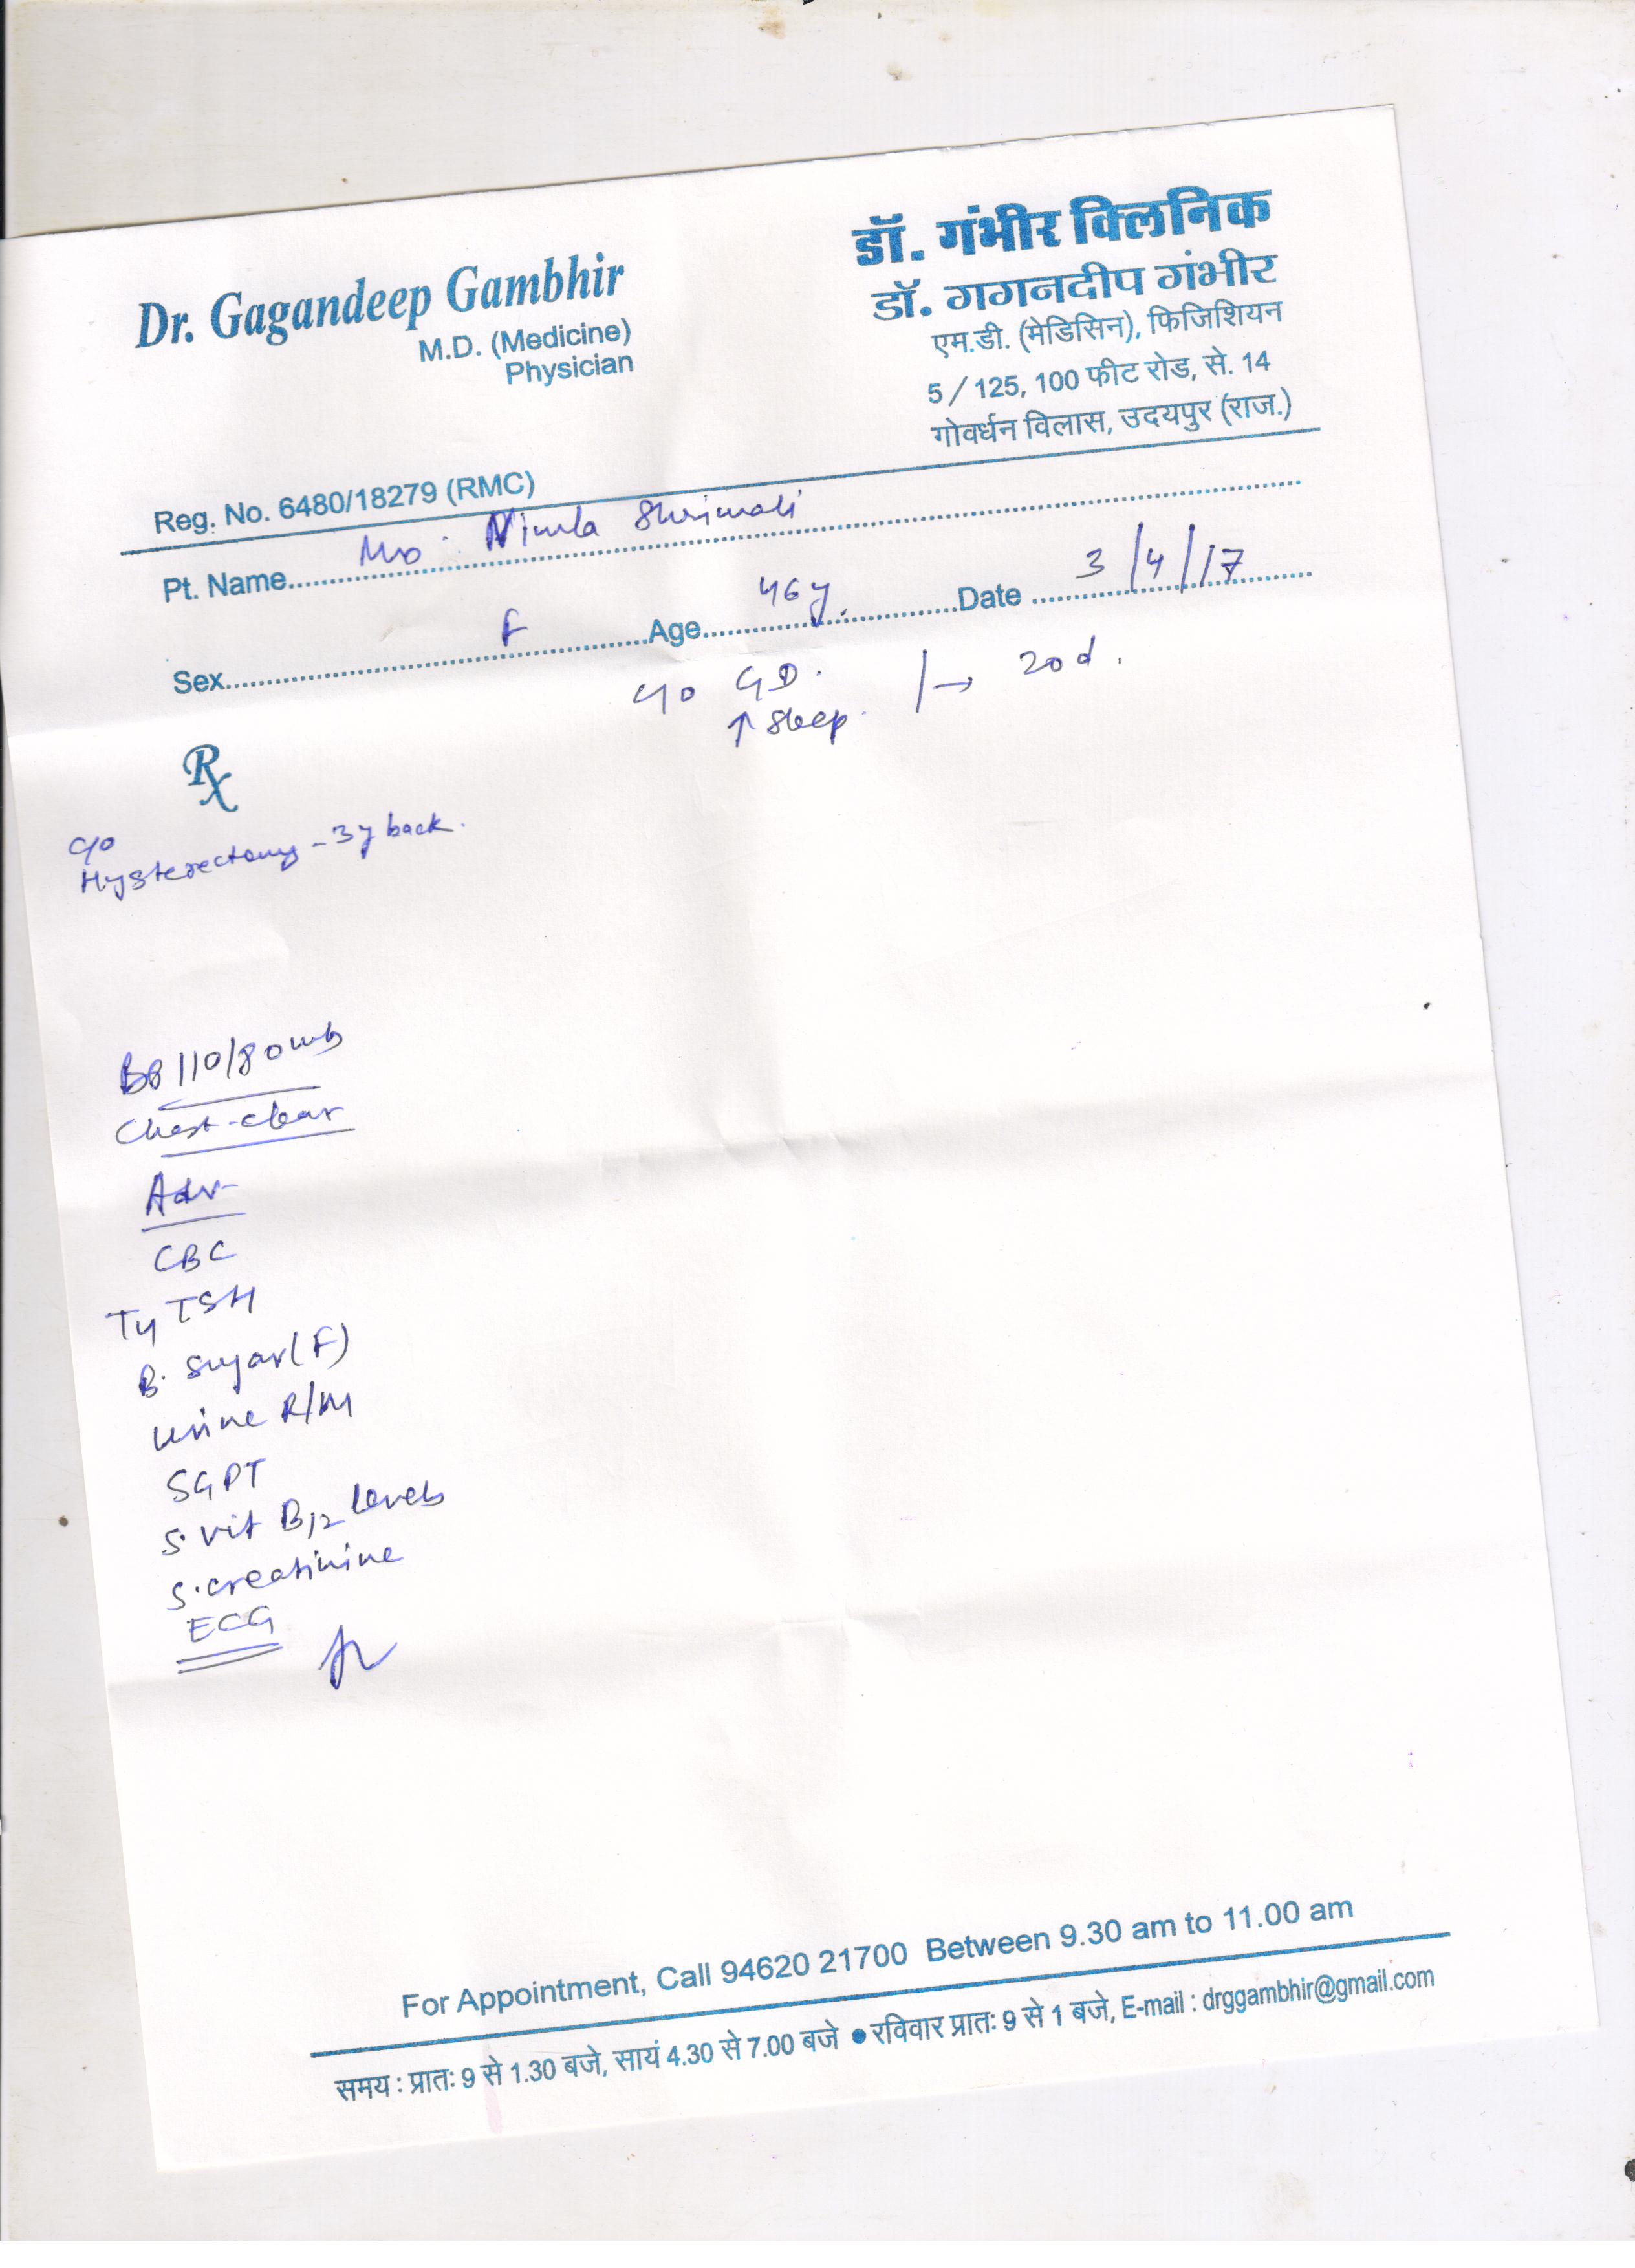 डॉ. गंभीर क्लिनिक
Dr. Gagandeep Gambhir
M.D. (Medicine)
Physician
डॉ. गगनदीप गंभीर
एम.डी. (मेडिसिन), फिजिशियन
5 / 125, 100 फीट रोड, से. 14
गोवर्धन विलास, उदयपुर (राज.)
Reg. No. 6480/18279 (RMC)
Pt. Name Shrimali
Sex F Age 46y. Date 3/4/17
c/o GD. → 20 d.
↑ sleep.
Rx
Hysterectomy - 3y back.
110/80
Chest - clear
Adv
CBC
T4 TSH
B. Sugar (F)
Urine R/M
SGPT
S. vit B12 levels
S. creatinine
ECG
For Appointment, Call 94620 21700 Between 9.30 am to 11.00 am
समय : प्रातः 9 से 1.30 बजे, सायं 4.30 से 7.00 बजे ● रविवार प्रातः 9 से 1 बजे, E-mail : drggambhir@gmail.com